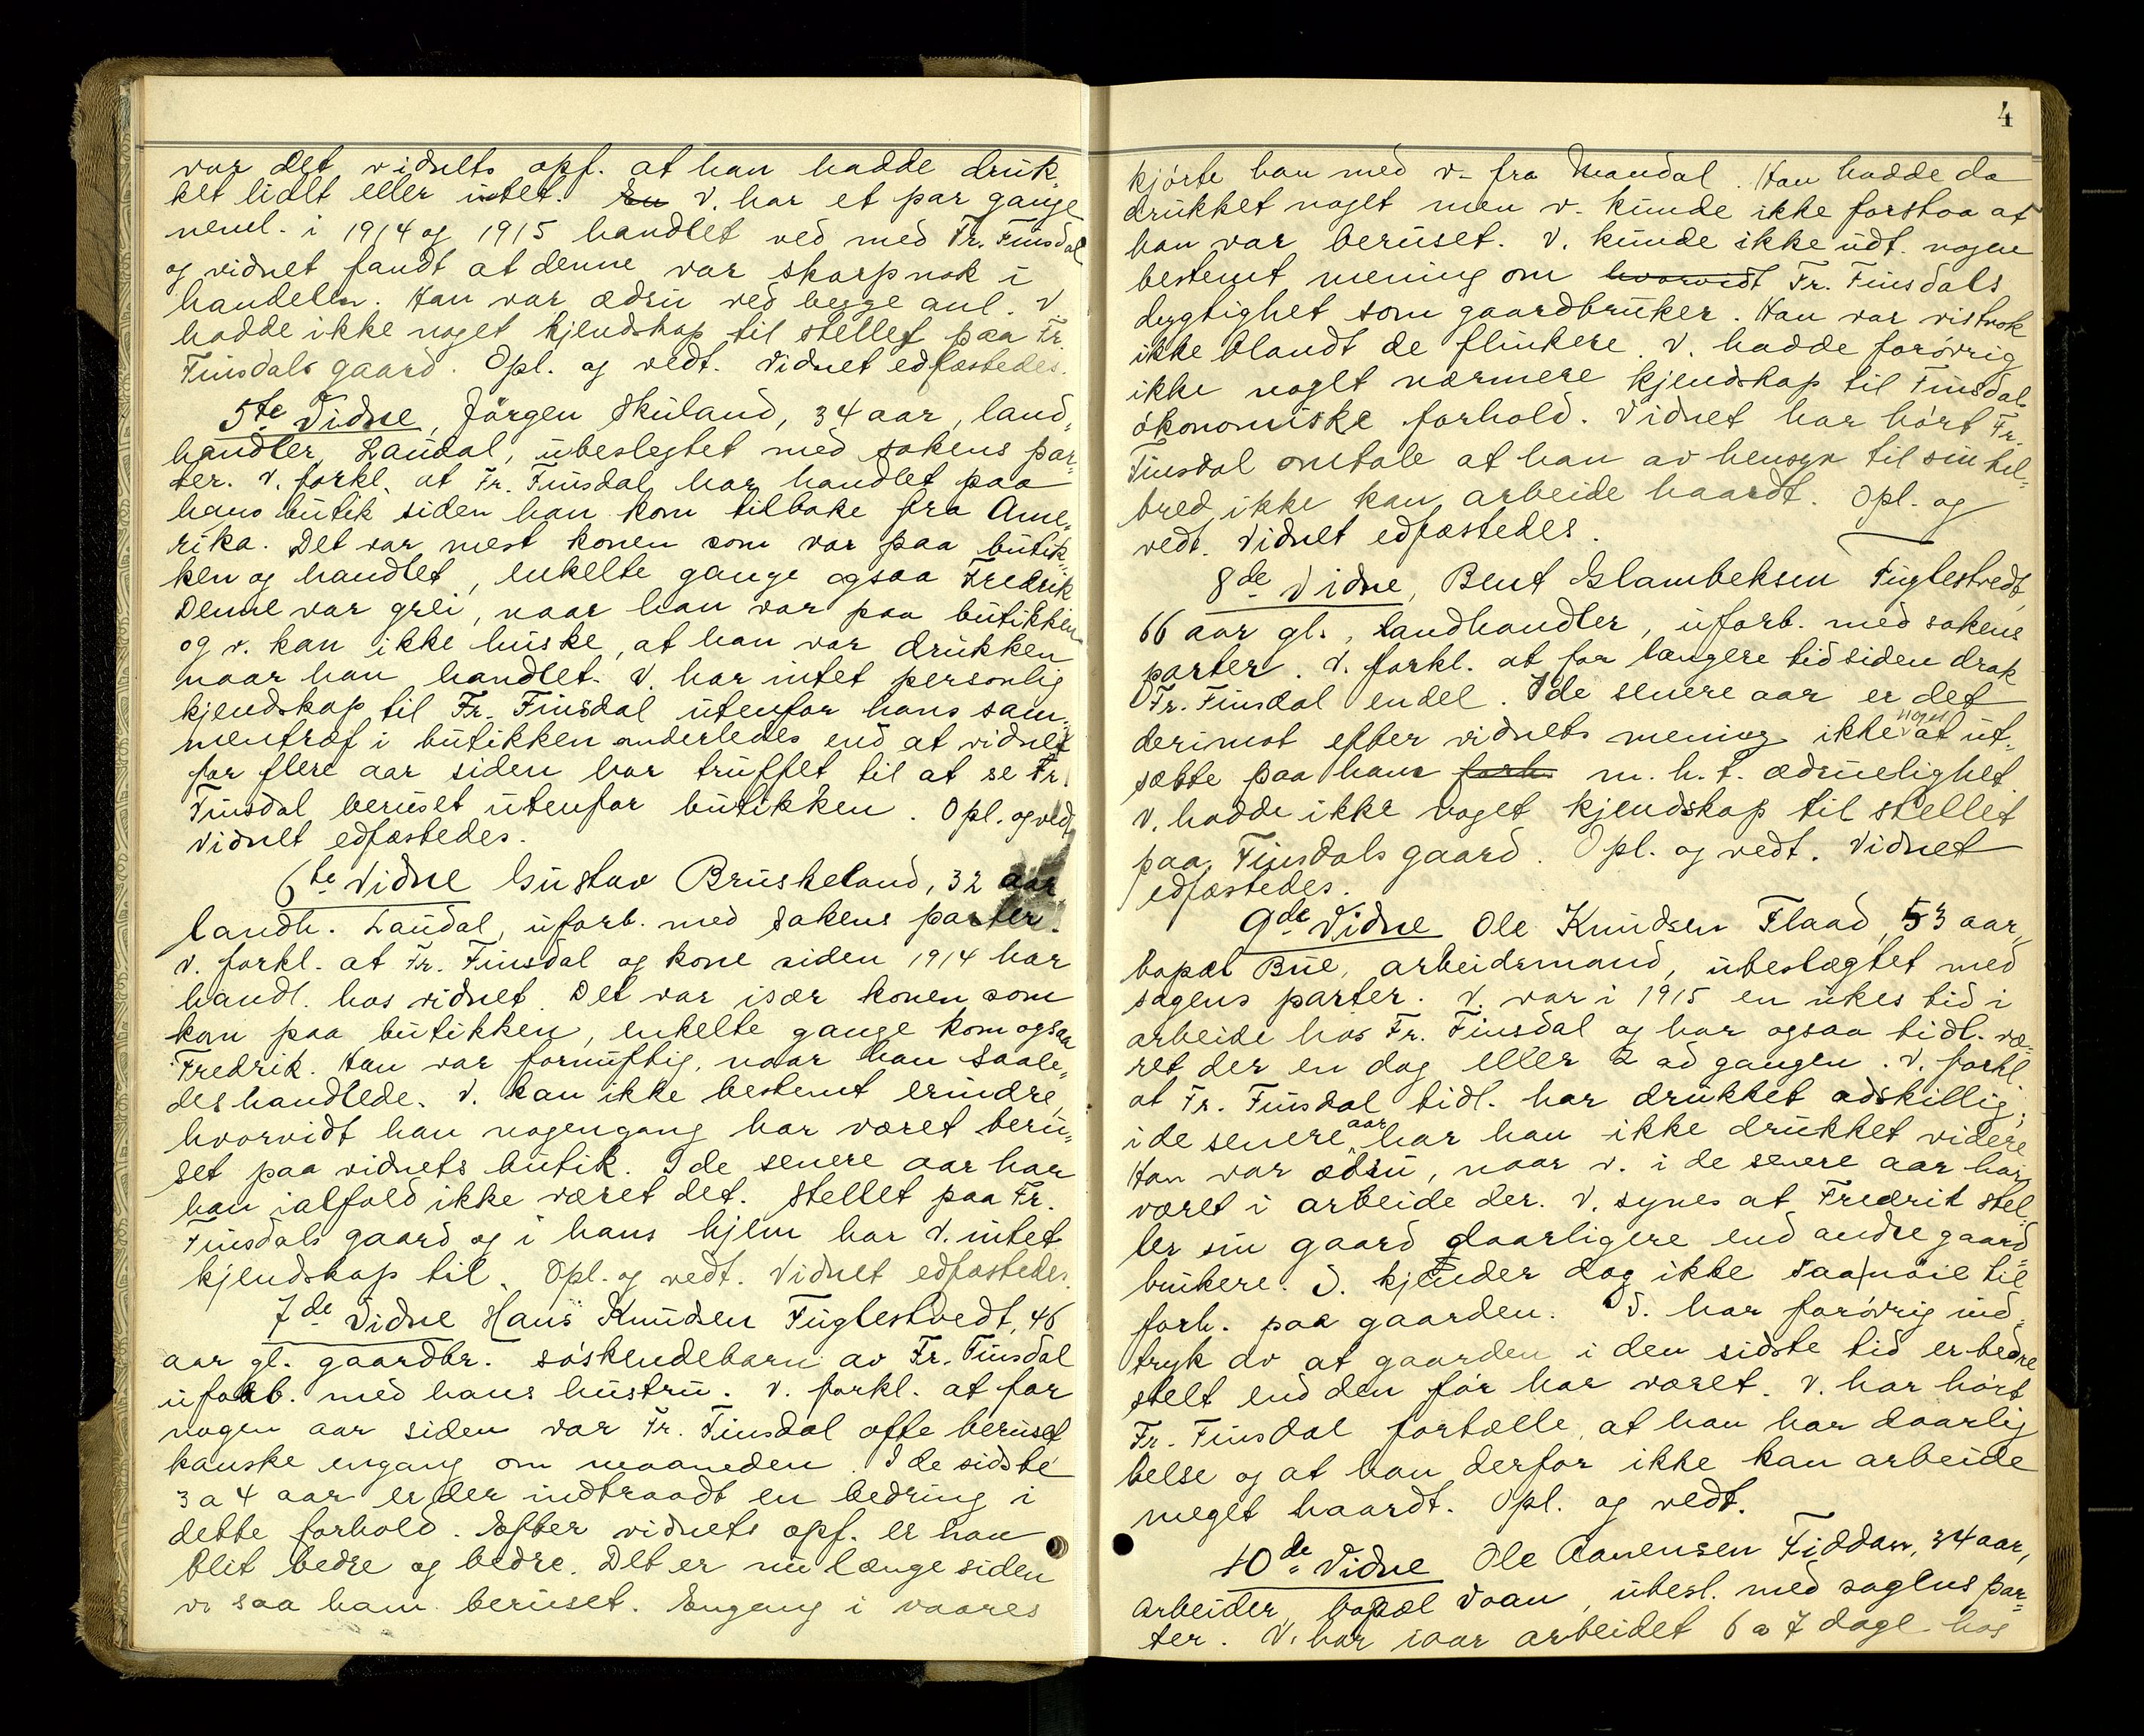 var det vidnets opf. at han hadde druk-
ket lidt eller intet. En V. har et par gange
neml. i 1914 og 1915 handlet ved med Fr. Finsdal
og vidnet fandt at denne var skarp nok i
handelen. Han var ædru ved begge anl. V
hadde ikke noget kjendskap til stellet paa Fr.
Finsdals gaard. Opl. og vedt. Vidnet edfæstedes.
5te Vidne, Jørgen Skuland, 34 aar, land-
handler, Laudal, ubeslegtet med sakens par-
ter. V. forkl. at Fr. Finsdal har handlet paa
hans butik siden han kom tilbake fra Ame-
rika. Det var mest konen som var paa butik-
ken og handlet, enkelte gange ogsaa Fredrik
Denne var grei, naar han var paa butikken
og v. kan ikke huske, at han var drukken
naar han handlet. V. har intet personlig
kjendskap til Fr. Finsdal utenfor hans sam-
mentræf i butikken anderledes end at vidnet
for flere aar siden har truffet til at se Fr.
Finsdal beruset utenfor butikken. Opl. og vedt.
Vidnet edfæstedes.
6te Vidne Gustav Bruskeland, 32 aar
landh. Laudal, uforb. med sakens parter.
V. forkl. at Fr. Finsdal og kone siden 1914 har
handl. hos vidnet. Det var især konen som
kom paa butikken, enkelte gange kom ogsaa
Fredrik. Han var fornuftig, naar han saale-
des handlede. V. kan ikke bestemt erindre,
hvorvidt han nogengang har været beru-
set paa vidnets butik. I de senere aar har
han ialfald ikke været det. Stellet paa Fr.
Finsdals gaard og i hans hjem har V. intet
kjendskap til. Opl. og vedt. Vidnet edfæstedes.
7de Vidne Hans Knudsen Fuglestvedt, 46
aar gl. gaardbr. søskendebarn av Fr. Finsdal
uforb. med hans hustru. V. forkl. at for
nogen aar siden var Fr. Finsdal ofte beruset
kanske engang om maaneden. I de sidste
3 a 4 aar er der indtraadt en bedring i
dette forhold. Efter vidnets opf. er han
blit bedre og bedre. Det er nu længe siden
v. saa ham beruset. Engang i vaares
4
kjørte han med v. fra Mandal. Han hadde da
drukket noget men v. kunde ikke forstaa at
han var beruset. V. kunde ikke udt. nogen
bestemt mening om hvorvidt Fr. Finsdals
dygtighet som gaardbruker. Han var vistnok
ikke blandt de flinkere. V. hadde forøvrig
ikke noget nærmere kjendskap til Finsdals
økonomiske forhold. Vidnet har hørt Fr.
Finsdal omtale at han av hensyn til sin hel-
bred ikke kan arbeide haardt. Opl. og
vedt. Vidnet edfæstedes.
8de Vidne, Bent Glambeksen Fuglestvedt,
66 aar gl., landhandler, uforb. med sakens
parter. V. forkl. at for længere tid siden drak
Fr. Finsdal endel. I de senere aar er det
derimot efter vidnets mening ikke noget at ut-
sætte paa hans forh. m. h. t. ædruelighet.
V. hadde ikke noget kjendskap til stellet
paa Finsdals gaard. Opl. og vedt. Vidnet
edfæstedes.
9de Vidne Ole Knudsen Flaad, 53 aar,
bopæl Bue, arbeidsmand, ubeslægtet med
sagens parter. V. var i 1915 en ukes tid i
arbeide hos Fr. Finsdal og har ogsaa tidl. væ-
ret der en dag eller 2 ad gangen. V. forkl.
at Fr. Finsdal tidl. har drukket adskillig;
i de senere aar har han ikke drukket videre
Han var ædru, naar v. i de senere aar har
været i arbeide der. V. synes at Fredrik stel-
ler sin gaard daarligere end andre gaard-
brukere. V. kjender dog ikke saa nøie til
forh. paa gaarden. V. har forøvrig ind-
tryk av at gaarden i den sidste tid er bedre
stelt end den før har været. V. har hørt
Fr. Finsdal fortælle, at han har daarlig
helse og at han derfor ikke kan arbeide
meget haardt. Opl. og vedt.
10de Vidne Ole Aanensen Fiddan, 34 aar,
arbeider, bopæl Voan, ubesl. med sagens par-
ter. V. har iaar arbeidet 6 a 7 dage hos